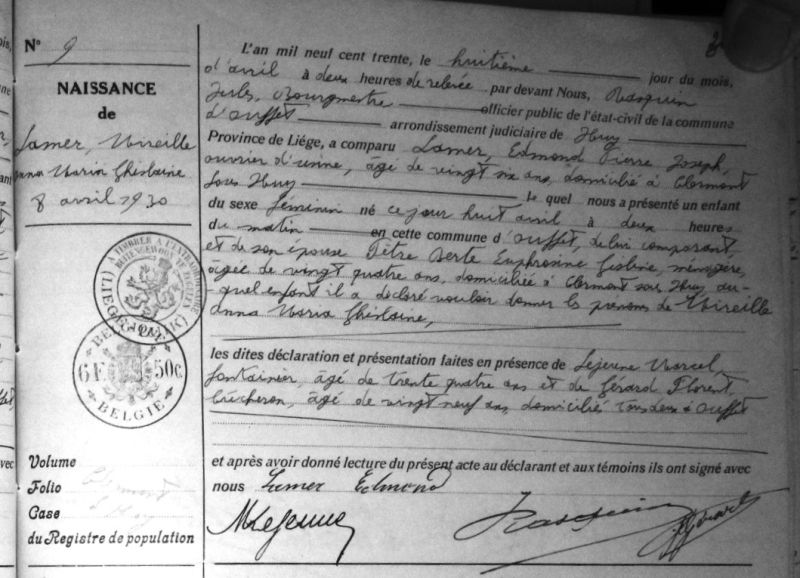 N° 9
NAISSANCE
de
Lamer, Mireille
Anna Maria Ghislaine
8 avril 1930
L'an mil neuf cent trente, le huitième jour du mois,
d'avril à deux heures de relevée par devant Nous, Rasquin
Jules, Bourgmestre officier public de l'état-civil de la commune
d'Ouffet arrondissement judiciaire de Huy
Province de Liége, a comparu Lamer, Edmond Pierre Joseph,
ouvrier d'usine, âgé de vingt six ans, domicilié à Clermont
sous Huy le quel nous a présenté un enfant
du sexe féminin né ce jour huit avril à deux heures
du matin en cette commune d'Ouffet, de lui comparant
et de son épouse Pètre Berte Euphrosine Gisline, ménagère,
âgée de vingt quatre ans, domiciliée à Clermont sous Huy, au-
quel enfant il a déclaré vouloir donner les prénoms de Mireille
Anna Maria Ghislaine,
les dites déclaration et présentation faites en présence de Lejeune Marcel,
fontainier, âgé de trente quatre ans et de Gérard Florent
bûcheron, âgé de vingt neuf ans, domiciliés tous deux à Ouffet
et après avoir donné lecture du présent acte au déclarant et aux témoins ils ont signé avec
nous Lamer Edmond
MLejeune Rasquin Gérard
A TIMBRER A L'EXTRAORDINAIRE
BELGIQUE
BELGIQUE
6F 50c.
BELGIE
Volume
Folio
Case
du Registre de population